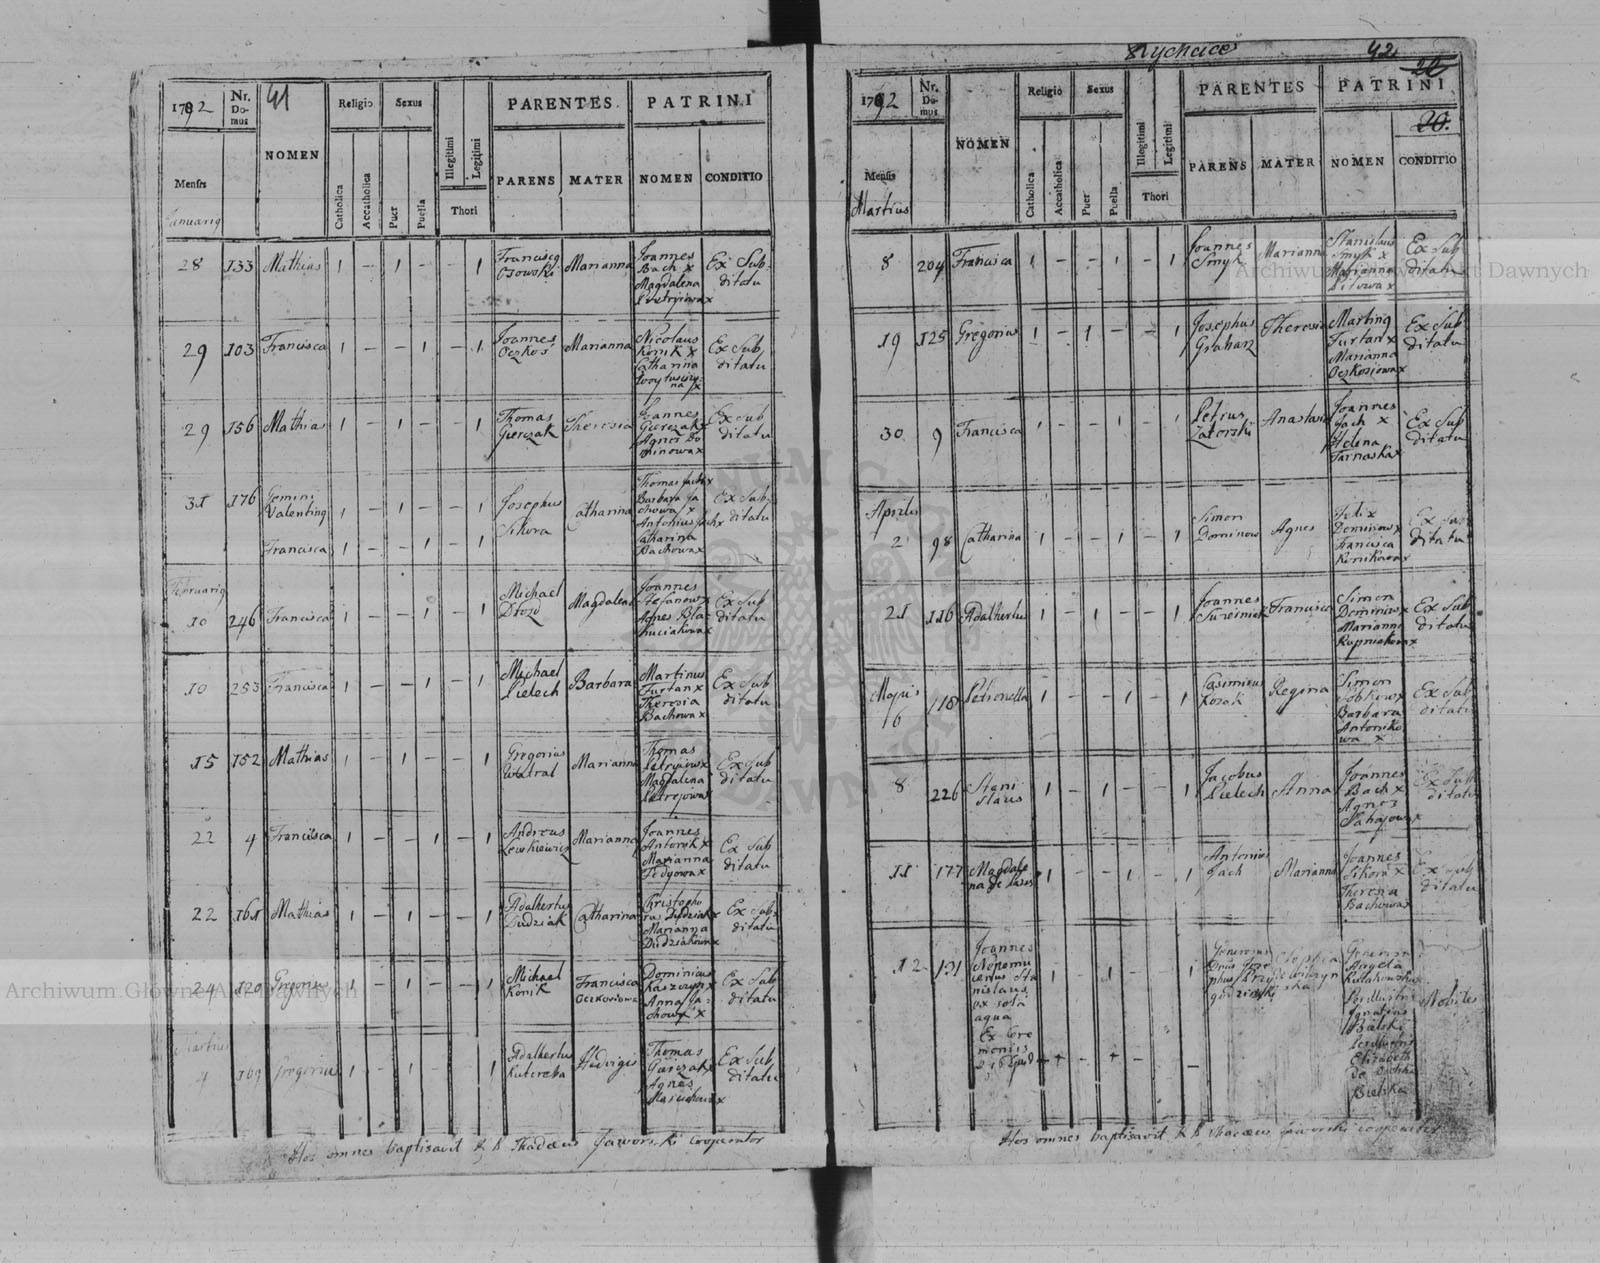 1792
Nr. Domus
41
NOMEN
Religio
Catholica
Accatholica
Sexus
Puer
Puella
Illegitimi
Legitimi
Thori
PARENTES
PARENS
MATER
PATRINI
NOMEN
CONDITIO
Mensis
Januarig
28 133 Mathias 1 – 1 – – 1 Franciscg Osowski Marianna Joannes Bach x Magdalena Ex Subditatu
29 103 Francisca 1 – – 1 – 1 Joannes Oczkoś Marianna Nicolaus Konik x Catharina Ex Subditatu
29 156 Mathias 1 – 1 – – 1 Thomas Gierczak Theresia Joannes Gierczak x Agnes Ex Subditatu
31 176 Gemini Valenting 1 – 1 – – 1 Josephus Sikora Catharina Thomas Jach x Barbara Jachowa x Antonius Jach x Catharina Bachowa x Ex Subditatu
Francisca 1 – – 1 – 1
Februarig
10 246 Francisca 1 – – 1 – 1 Michael Drozd Magdalena Joannes Stefanow x Agnes Ex Subditatu
10 253 Francisca 1 – – 1 – 1 Michael Pielech Barbara Martinus Furtan x Theresia Bachowa x Ex Subditatu
15 152 Mathias 1 – 1 – – 1 Gregorius Marianna Thomas Magdalena Ex Subditatu
22 4 Francisca 1 – – 1 – 1 Andreas Lewkiewicz Marianna Joannes Marianna Fedyowa x Ex Subditatu
22 161 Matthias 1 – 1 – – 1 Adalbertus Dudziak Catharina Christophorus Dudziak x Marianna Dudziakowa x Ex Subditatu
24 120 Gregorius 1 – 1 – – 1 Michael Konik Francisca Oczkosiowa Dominicus Kaszczyn x Anna Jachowa x Ex Subditatu
Martius
4 169 Gregorius 1 – 1 – – 1 Adalbertus Kutereba Hedvigis Thomas Gierczak x Agnes Ex Subditatu
Hos omnes baptisavit Thadæus Jaworski Cooperator
Rychcice
42
20.
1792
Nr. Domus
NOMEN
Religio
Catholica
Accatholica
Sexus
Puer
Puella
Illegitimi
Legitimi
Thori
PARENTES
PARENS
MATER
PATRINI
NOMEN
CONDITIO
Mensis
Martius
8 204 Francisca 1 – – 1 – 1 Joannes Smyk Marianna Stanislaus Smyk x Marianna Ex Subditatu
19 125 Gregorius 1 – 1 – – 1 Josephus Grabarz Theresia Marting Furtan x Marianna Oczkosiowa x Ex Subditatu
30 9 Francisca 1 – – 1 – 1 Petrus Zatorski Anastasia Joannes Jach x Helena Tarnaska x Ex Subditatu
Aprilis
2 98 Catharina 1 – – 1 – 1 Simon Dominow Agnes Felix Dominow x Francisca Konikowa x Ex Subditatu
21 116 Adalbertus 1 – 1 – – 1 Joannes Francisca Simon Dominow x Marianna Ex Subditatu
Mayus
6 118 Petronella 1 – – 1 – 1 Casimirus Kozak Regina Simon Barbara Antonikowa x Ex Subditatu
8 226 Stanislaus 1 – 1 – – 1 Jacobus Pielech Anna Joannes Bach x Agnes Ex Subditatu
11 177 Magdalena de Pazzis 1 – – 1 – 1 Antonius Jach Marianna Joannes Sikora x Theresia Bachowa x Ex Subditatu
12 131 Joannes Nepomucenus Stanislaus ex sola aqua 1 – 1 – – 1 Generosus Josephus Sophia Generosa Angela Ignatius Bielski Elizabeth Bielska Nobiles
Ex Ceremoniis
Hos omnes baptisavit Thadæus Jaworski Cooperator
Archiwum Główne Akt Dawnych
Archiwum Główne Akt Dawnych